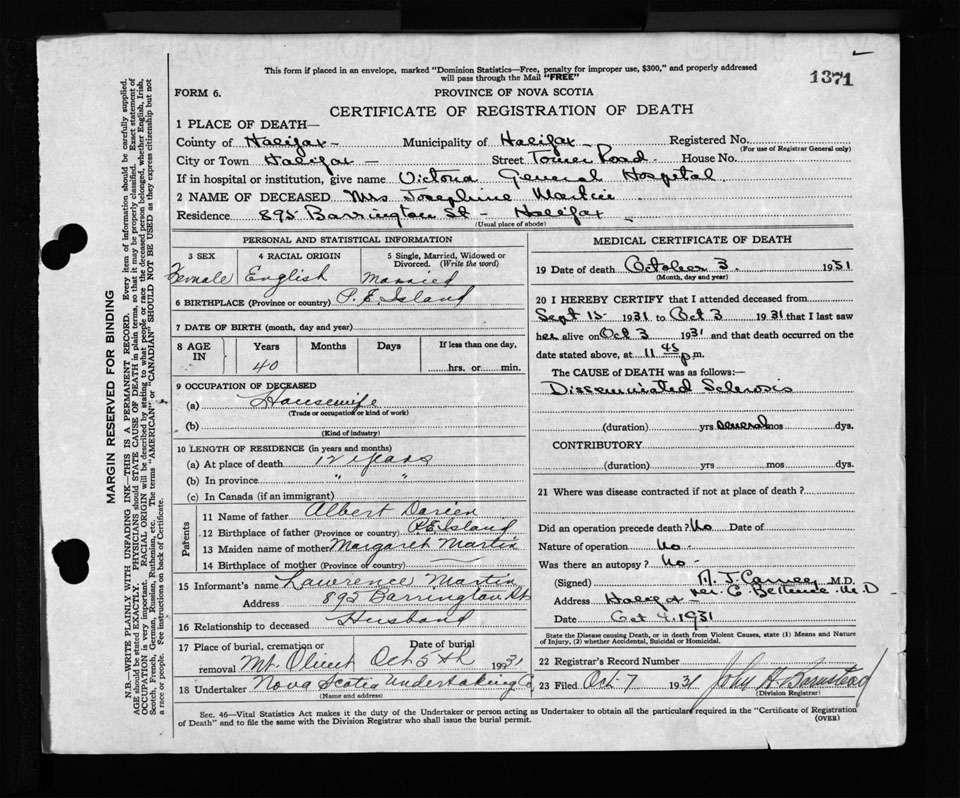 This form if placed in an envelope, marked "Dominion Statistics—Free, penalty for improper use, $300," and properly addressed
will pass through the Mail "FREE"
1371
FORM 6.
PROVINCE OF NOVA SCOTIA
CERTIFICATE OF REGISTRATION OF DEATH
1 PLACE OF DEATH—
County of Halifax - Municipality of Halifax - Registered No.
(For use of Registrar General only)
City or Town Halifax - Street Tower Road. House No.
If in hospital or institution, give name Victoria General Hospital
2 NAME OF DECEASED Mrs Josephine Martin
Residence 895 Barrington St - Halifax
(Usual place of abode)
PERSONAL AND STATISTICAL INFORMATION
3 SEX 4 RACIAL ORIGIN 5 Single, Married, Widowed or
Divorced. (Write the word)
Female English Married
6 BIRTHPLACE (Province or country) P.E. Island
7 DATE OF BIRTH (month, day and year)
8 AGE IN Years Months Days If less than one day,
40 hrs. or min.
9 OCCUPATION OF DECEASED
(a) Housewife
(Trade or occupation or kind of work)
(b)
(Kind of industry)
10 LENGTH OF RESIDENCE (in years and months)
(a) At place of death 12 years
(b) In province " "
(c) In Canada (if an immigrant)
Parents
11 Name of father Albert
12 Birthplace of father (Province or country) P.E. Island
13 Maiden name of mother Margaret Martin
14 Birthplace of mother (Province of country)
15 Informant's name Lawrence Martin
Address 895 Barrington St
16 Relationship to deceased Husband
17 Place of burial, cremation or removal Date of burial
Mt. Olivet Oct 5th 1931
18 Undertaker Nova Scotia Undertaking Co
(Name and address)
MEDICAL CERTIFICATE OF DEATH
19 Date of death October 3. 1931
(Month, day and year)
20 I HEREBY CERTIFY that I attended deceased from
Sept 15 1931 to Oct 3 1931 that I last saw
her alive on Oct 3 1931 and that death occurred on the
date stated above, at 11 45 p.m.
The CAUSE OF DEATH was as follows:—
Disseminated Sclerosis
(duration) yrs several mos dys.
CONTRIBUTORY
(duration) yrs mos dys.
21 Where was disease contracted if not at place of death?
Did an operation precede death? No Date of
Nature of operation No -
Was there an autopsy? No -
(Signed) M.D.
Address Halifax - M.D
Date Oct 4, 1931
State the Disease causing Death, or in death from Violent Causes, state (1) Means and Nature
of Injury, (2) whether Accidental, Suicidal or Homicidal.
22 Registrar's Record Number
23 Filed Oct 7 1931 John H. Barnstead
(Division Registrar)
Sec. 46—Vital Statistics Act makes it the duty of the Undertaker or person acting as Undertaker to obtain all the particulars required in the "Certificate of Registration
of Death" and to file the same with the Division Registrar who shall issue the burial permit.
(OVER)
MARGIN RESERVED FOR BINDING
N.B.—WRITE PLAINLY WITH UNFADING INK—THIS IS A PERMANENT RECORD. Every item of information should be carefully supplied.
AGE should be stated EXACTLY. PHYSICIANS should STATE CAUSE OF DEATH in plain terms, so that it may be properly classified. Exact statement of
OCCUPATION is very important. RACIAL ORIGIN will be described by stating to what people or race the deceased person belonged, whether English, Irish,
Scotch, French, German, Russian, Ruthenian, etc. The terms "AMERICAN" or "CANADIAN" SHOULD NOT BE USED as they express citizenship but not
a race or people. See instructions on back of Certificate.